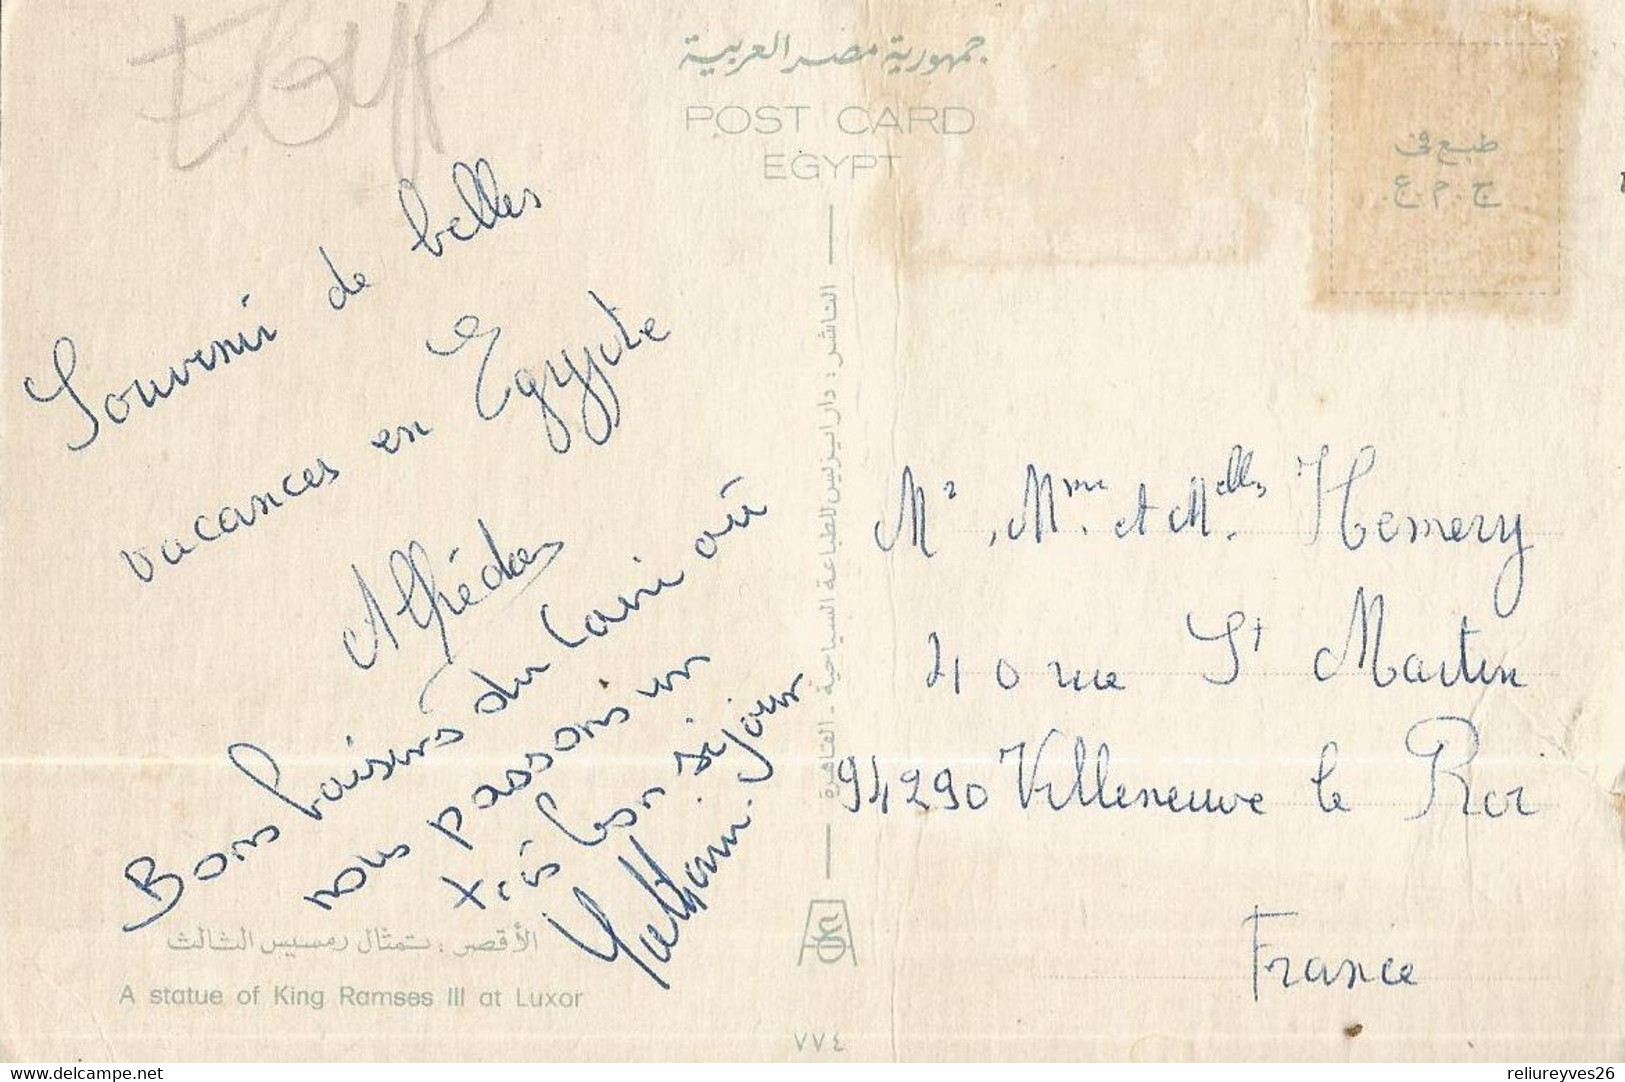 EGYP
جمهورية مصر العربية
POST CARD
EGYPT
طبع في
ج.م.ع.
Souvenir de belles
vacances en Egypte
Bons baisers du Caire où
nous passons un
très bon séjour
الناشر : دار ايزيس للطباعة السياحية - القاهرة
الأقصر : تمثال رمسيس الثالث
A statue of King Ramses III at Luxor
٧٧٤
Mr, Mme. et Melles. Hemery
40 rue St Martin
94290 Villeneuve le Roi
France
delcampe.net
reliureyves26